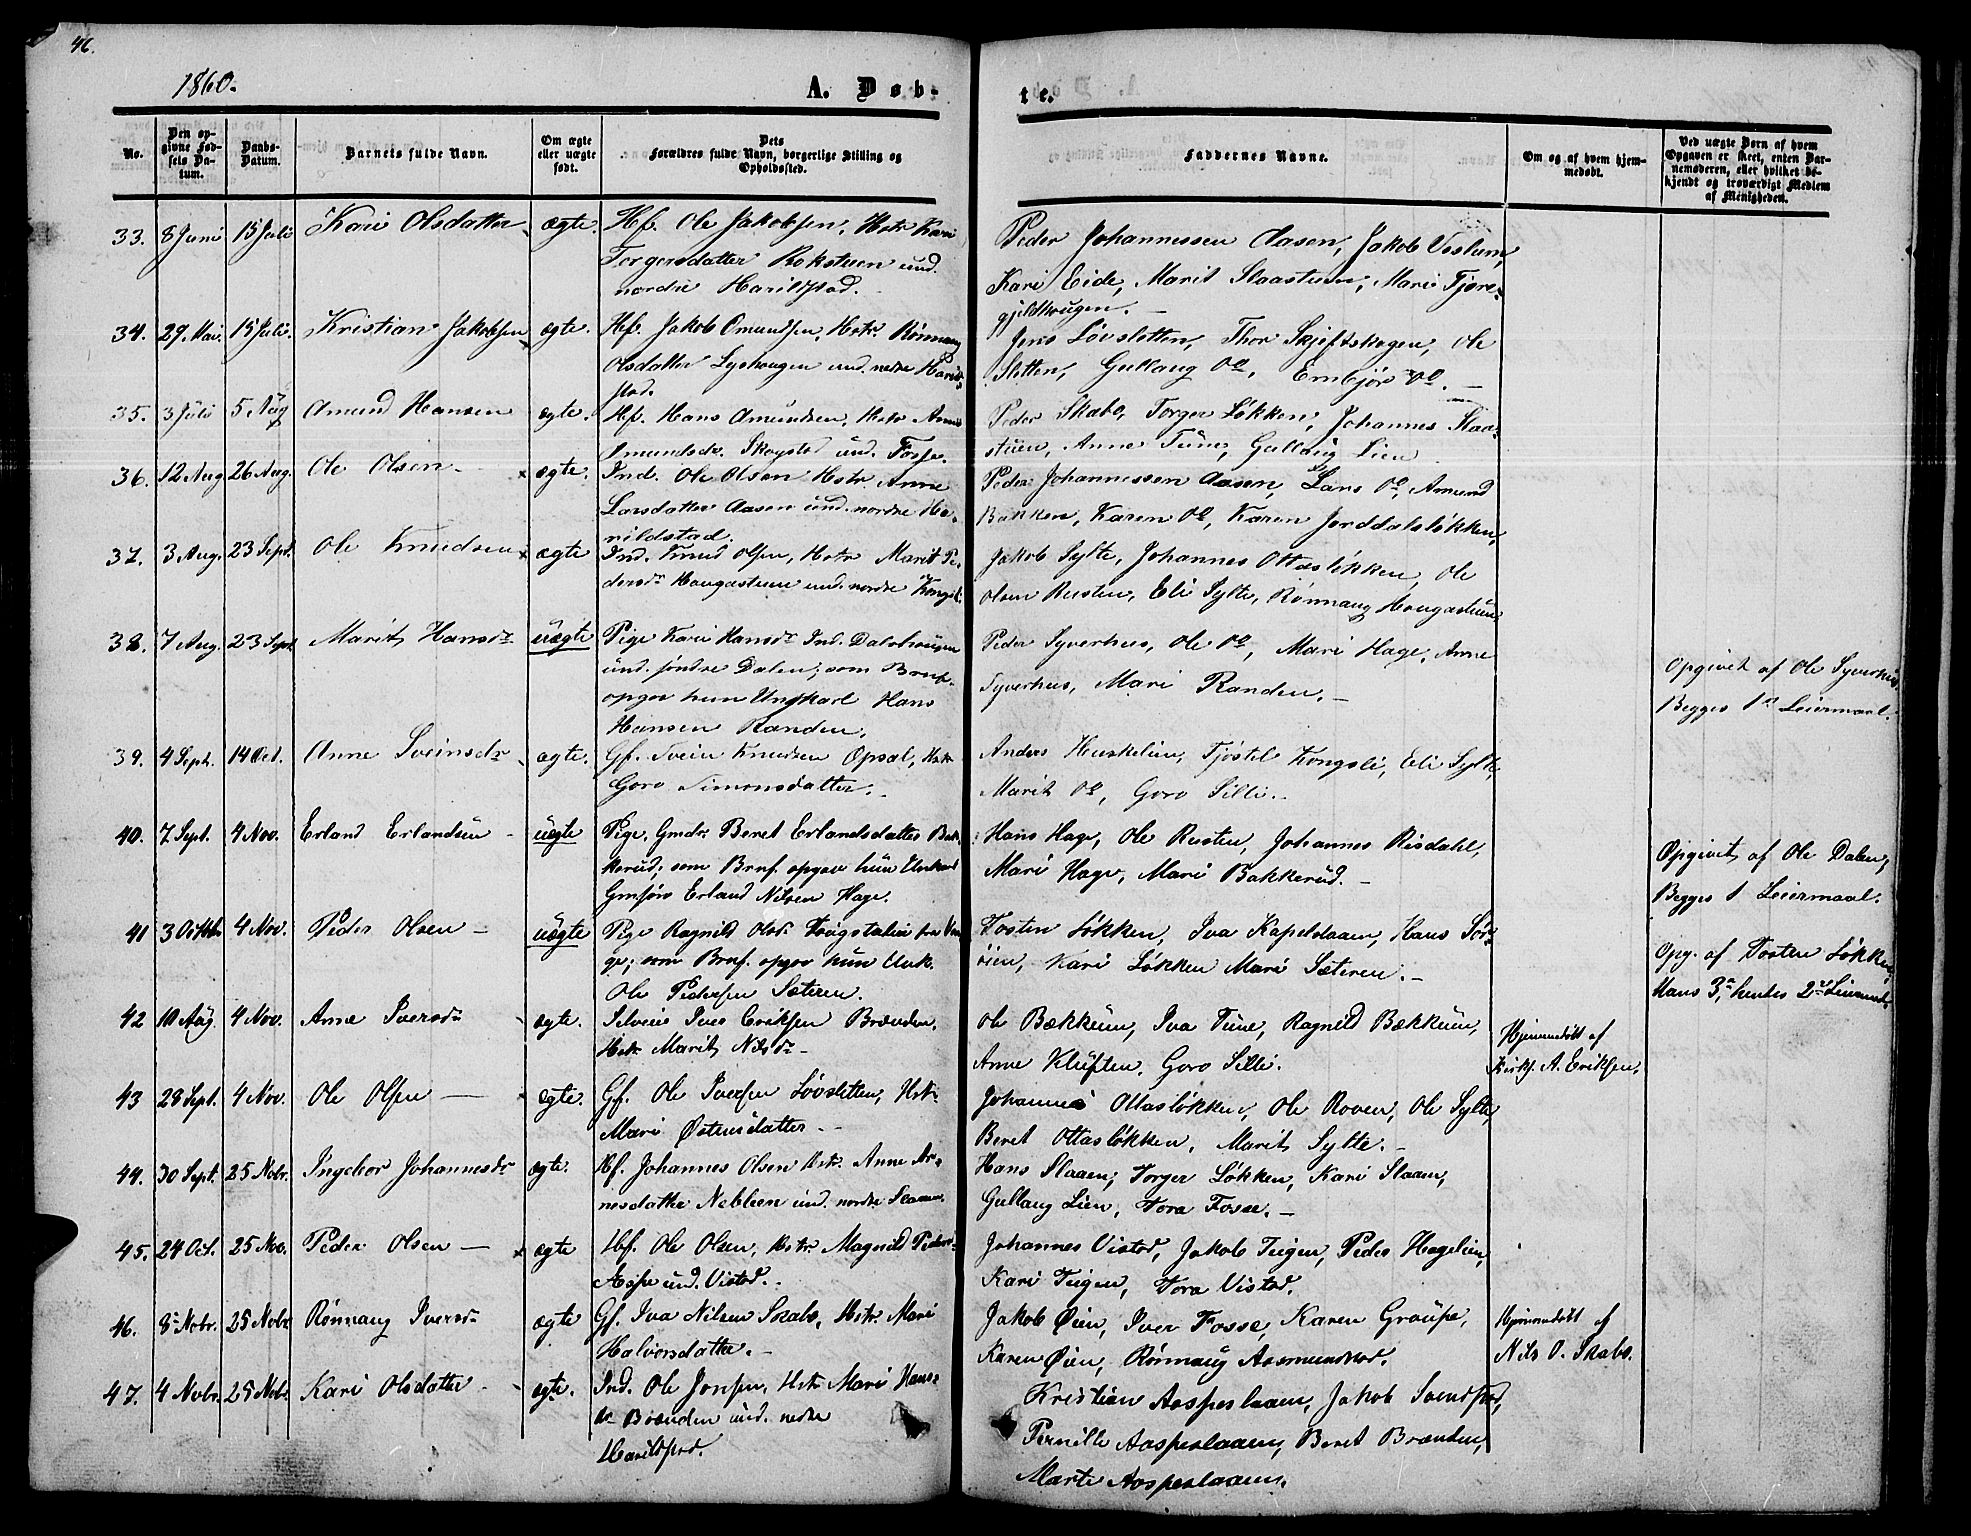 46.
1860.
A. Døb-
te.
No.
Den op-
givne Fød-
sels Da-
tum.
Daabs-
Datum.
Barnets fulde Navn.
Om ægte
eller uægte
født.
Dets
Forældres fulde Navn, borgerlige Stilling og
Opholdssted.
Faddernes Navne.
Om og af hvem hjem-
medøbt.
Ved uægte Børn af hvem
Opgaven er skeet, enten Bar-
nemoderen, eller hvilket be-
kjendt og troværdigt Medlem
af Menigheden.
33. 8 Juni 15 Juli Kari Olsdatter ægte. Hf. Ole Jakobsen, Hstr Kari
Torgersdatter Rokstuen und.
nordre Harildstad.
Peder Johannessen Aasen, Jakob Veslum,
Kari Eide, Marit Slaastuen, Mari Fjøre-
gjeldhaugen.
34. 29. Mai. 15 Juli. Kristian Jakobsen ægte. Hf. Jakob Omundsen, Hstr Rønnaug
Olsdatter Lyshaugen und. nedre Harild-
stad.
Jens Løvsletten, Thor Skjeftskogen, Ole
Sletten, Gullaug do, Embjør do.
35. 3 Juli 5 Aug Amund Hansen ægte. Hf. Hans Amundsen, Hstr Anne
Omundsdr. Skogstad und. Fosse.
Peder Skabo, Torger Løkken, Johannes Slaa-
stuen, Anne Tune, Gullaug Lien
36. 12 Aug 26 Aug. Ole Olsen ægte. Ind. Ole Olsen Hstr. Anne
Larsdatter Aasen und. nordre Ha-
rildstad.
Peder Johannessen Aasen, Lars do, Amund
Bakken, Karen do, Karen Jorddalsløkken,
37. 3 Aug. 23 Sept. Ole Knudsen ægte Ind. Knud Olsen, Hstr Marit Pe-
dersdr Haugastuen und. nordre Kongsli.
Jakob Sylte, Johannes Ottasløkken, Ole
Olsen Rusten, Eli Sylte, Rønnaug Haugastuen
38. 7 Aug. 23 Sept Marit Hansdr uægte Pige Kari Hansdr Ind. Dalshaugen
und. søndre Dalen; som Brnf.
opgav hun Ungkarl Hans
Hansen Randen.
Peder Syverhus, Ole do, Mari Hage, Anne
Syverhus, Mari Randen.
Opgivet af Ole Syverhus.
Begges 1ste Leiermaal.
39. 4 Sept. 14 Oct. Anne Sveinsdr ægte. Gf. Svein Knudsen Opsal, Hstr
Goro Simonsdatter.
Anders Huskelien, Tjøstel Kongsli, Eli Sylte,
Marit do, Goro Silli.
40. 7 Sept. 4 Nov. Erland Erlandsen uægte Pige, Gmdr. Beret Erlandsdatter Bak-
kerud, som Brnf. opgav hun Unkarl
Gmsøn Erland Nilsen Hage.
Hans Hage, Ole Rusten, Johannes Risdahl,
Mari Hage, Mari Bakkerud.
Opgivet af Ole Dalen,
Begges 1 Leiermaal.
41 3 Octbr 4 Nov. Peder Olsen uægte Pige Ragnild Olsdr. fra
som Brnf. opgav hun Unk.
Ole Pedersen Sæteren.
Tosten Løkken, Iva Kapelslaaen, Hans Sør-
øien, Kari Løkken Mari Sæteren.
Opg. af Tosten Løkken,
Hans 3die, hendes 2det Leiermaal.
42 10 Aug. 4 Nov. Anne Iversdr ægte. Selveier Iver Eriksen Brænden,
Hstr Marit Nilsdr
Ole Bækkum, Iva Tune, Ragnild Bækkum,
Anne Kluften, Goro Silli.
Hjemmedøbt af
Kirks. A. Eriksen.
43 28 Sept. 4 Nov. Ole Olsen ægte. Gf. Ole Iversen Løvsletten, Hstr.
Mari Østensdatter.
Johannes Ottasløkken, Ole Roven, Ole Sylte,
Beret Ottasløkken, Marit Sylte.
44. 30 Sept. 25 Nobr. Ingebor Johannesdr ægte. Hf. Johannes Olsen Hstr. Anne Ar-
nesdatter Nebleen und. nordre Slaaen.
Hans Slaaen, Torger Løkken, Kari Slaaen,
Gullaug Lien, Tora Fosse.
45. 24 Oct. 25 Nov. Peder Olsen ægte Hf. Ole Olsen, Hstr. Magnild Peders-
Aspe und. Vistad.
Johannes Vistad, Jakob Teigen, Peder Hagelien,
Kari Teigen, Tora Vistad.
46. 8 Nobr. 25 Nobr. Rønnaug Iversdr ægte Gf. Iva Nilsen Skabo, Hstr. Mari
Halvorsdatter.
Jakob Øien, Iver Fosse, Karen Graupe,
Karen Øien, Rønnaug Aasmundstad.
Hjemmedøbt af
Nils O. Skabo.
47. 4 Nobr. 25 Nobr. Kari Olsdatter ægte. Ind. Ole Jonsen, Hstr Mari Hans-
dr Brænden und. nedre
Harildstad.
Kristian Aaspeslaaen, Jakob Svendstad,
Pernille Aaspeslaaen, Beret Brænden,
Marte Aaspeslaaen.